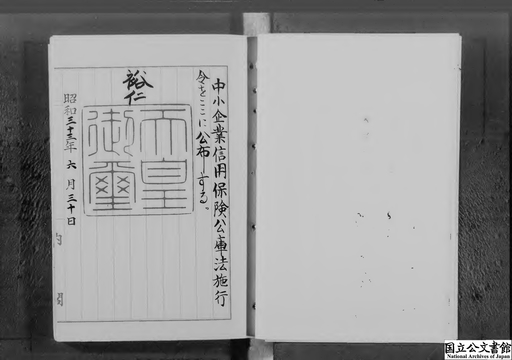 中小企業信用保険公庫法施行
令をここに公布する。
裕仁
天皇
御璽
昭和三十三年六月三十日
内閣
国立公文書館
National Archives of Japan